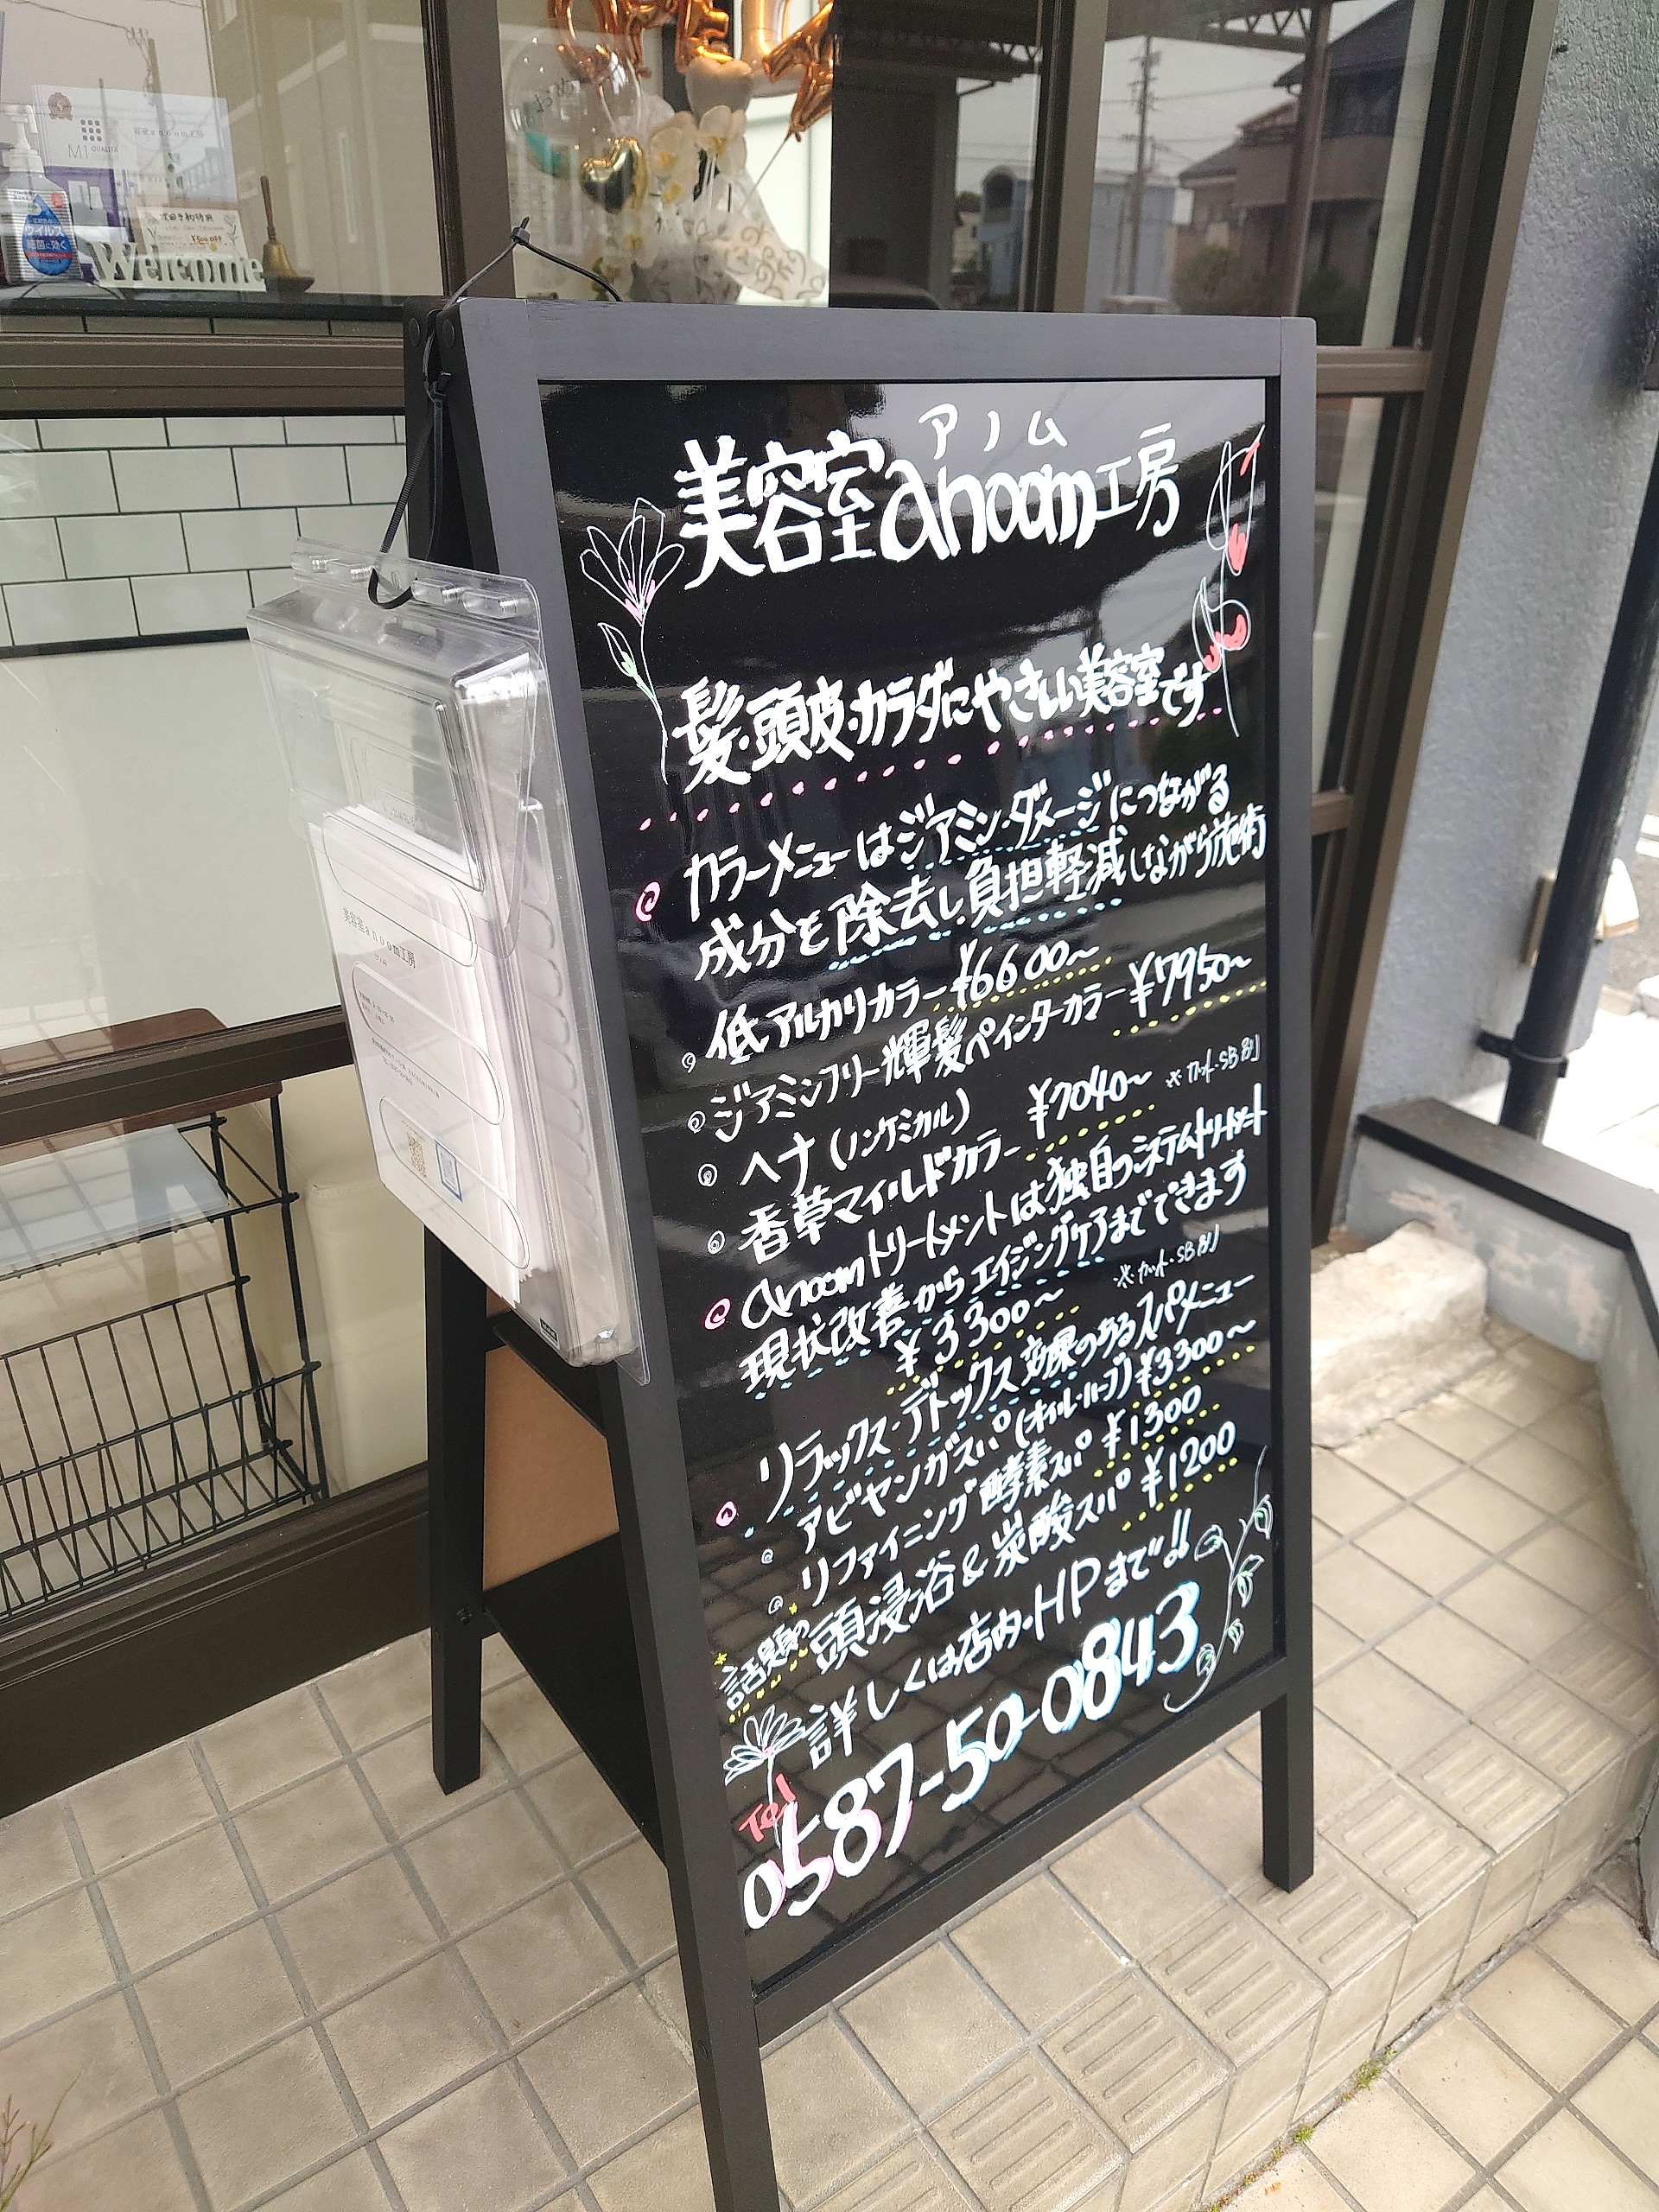 アノム
美容室anoom工房
髪・頭皮・カラダにやさしい美容室です
カラーメニューはジアミン・ダメージにつながる
成分を除去し負担軽減しながら施術
低アルカリカラー ¥6600~
ジアミンフリー輝髪ペインターカラー ¥7950~
ヘナ(ノンケミカル)
香草マイルドカラー ¥7040~ ※カット・SB別
anoomトリートメントは独自のシステムトリートメント
現状改善からエイジングケアまでできます
¥3300~ ※カット・SB別
リラックス・デトックス効果のあるスパメニュー
アビヤンガスパ(オイル・ハーブ)¥3300~
リファイニング酵素スパ ¥1300
話題の 頭浸浴&炭酸スパ ¥1200
詳しくは店内・HPまで!!
Tel
0587-50-0843
美容室anoom工房
Welcome
ウイルス
細菌に効く
M1 QUALITÀ
¥500 OFF